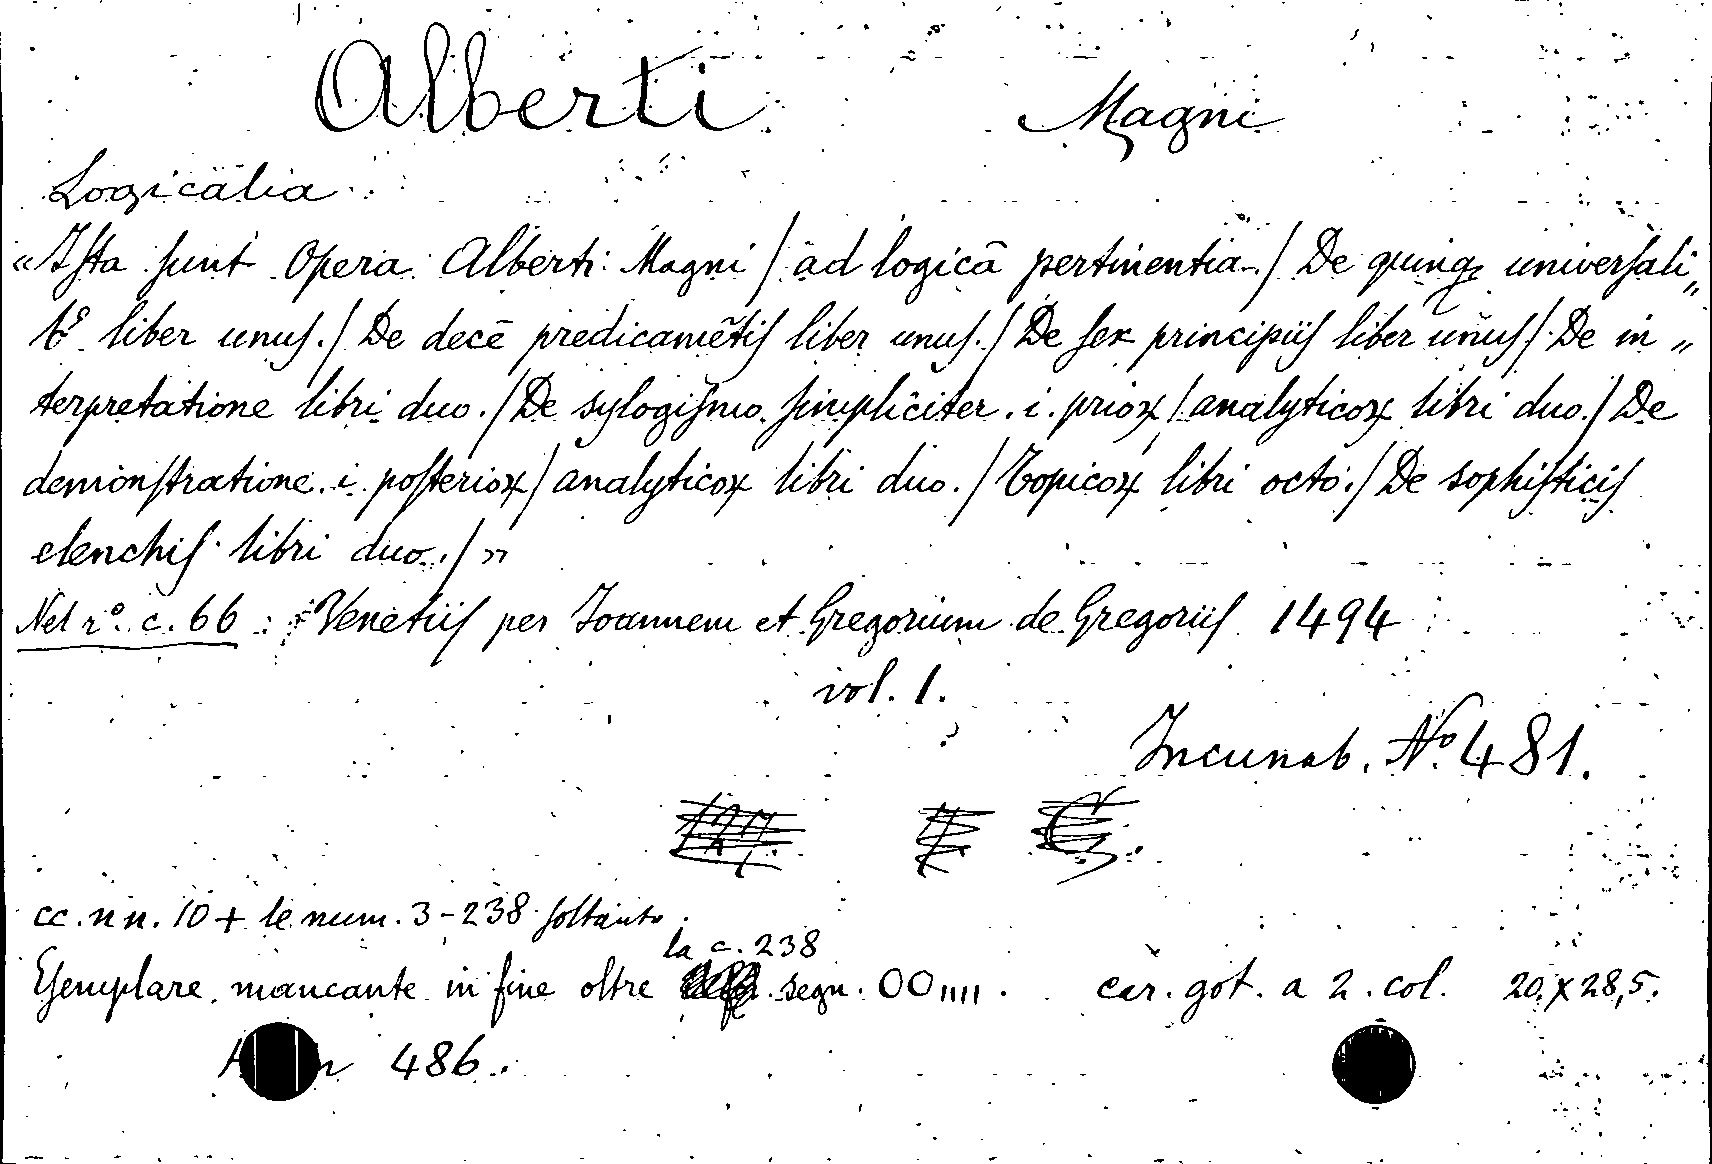 Alberti Magni
Logicalia
«Iſta ſunt Opera Alberti Magni / ad logicā pertinentia. / De quinqꝫ univerſali„
bꝰ liber unuſ. / De decē predicamētiſ liber unuſ. / De ſex principiiſ liber unuſ / De in „
terpretatione libri duo. / De sylogiſmo ſimpliciter . i . prioꝝ / analyticoꝝ libri duo. / De
demonſtratione . i . poſterioꝝ / analyticoꝝ libri duo. / Topicoꝝ libri octo. / De sophiſticiſ
elenchiſ libri duo. / »
Nel rº. c. 66 : Venetiiſ per Joannem et Gregorium de Gregoriiſ 1494
vol. 1.
Incunab. Nº 481.
cc. nn. 10 + le num. 3-238 ſoltanto
la c. 238
Eſemplare mancante in fine oltre segn. OOIIII. car. got. a 2. col. 20 x 28,5.
486.